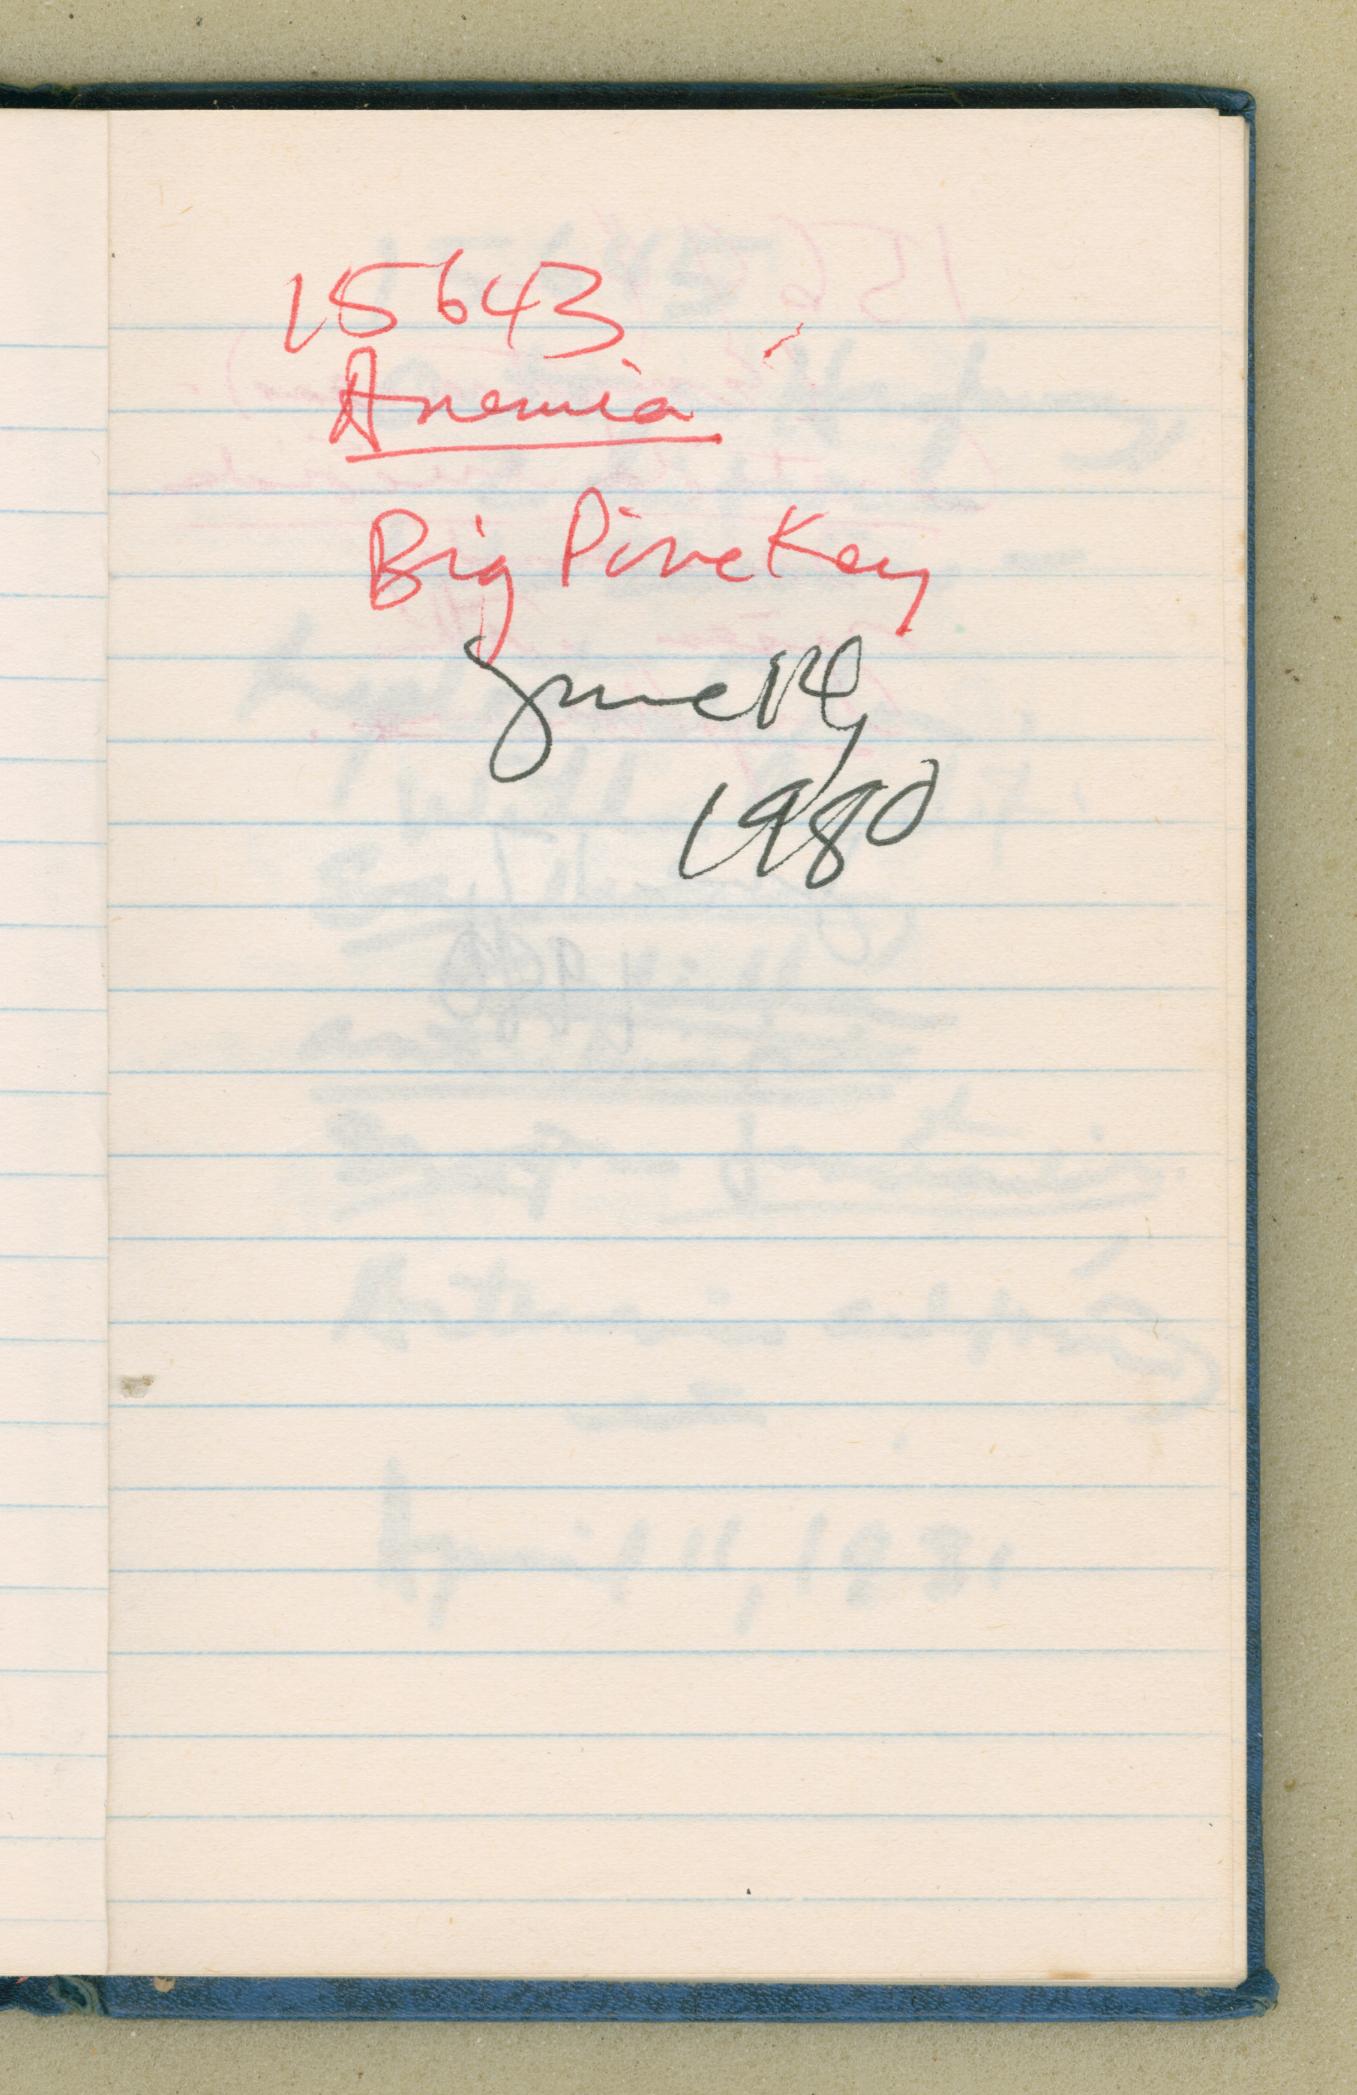 15643
Anemia
Big Pine Key
June 14,
1980